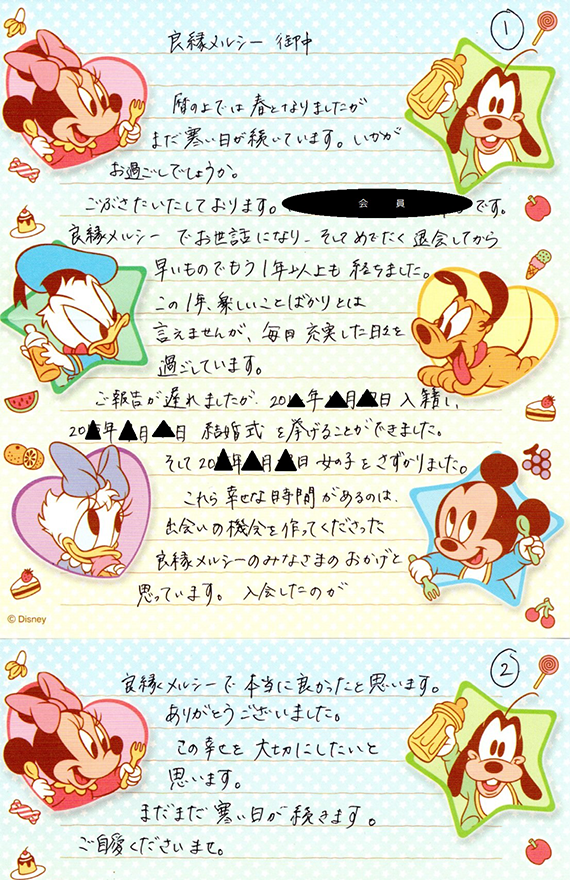 ①
良縁メルシー 御中
暦の上では春となりましたが
まだ寒い日が続いています。いかが
お過ごしでしょうか。
ごぶさたいたしております。 会員 です。
良縁メルシー でお世話になり、そしてめでたく退会してから
早いものでもう1年以上も経ちました。
この1年、楽しいことばかりとは
言えませんが、毎日充実した日々を
過ごしています。
ご報告が遅れましたが、20▲年▲月▲日 入籍し、
20▲年▲月▲日 結婚式を挙げることができました。
そして20▲年▲月▲日 女の子をさずかりました。
これら幸せな時間があるのは、
出会いの機会を作ってくださった
良縁メルシーのみなさまのおかげと
思っています。 入会したのが
© Disney
②
良縁メルシーで本当に良かったと思います。
ありがとうございました。
この幸せを大切にしたいと
思います。
まだまだ寒い日が続きます。
ご自愛くださいませ。